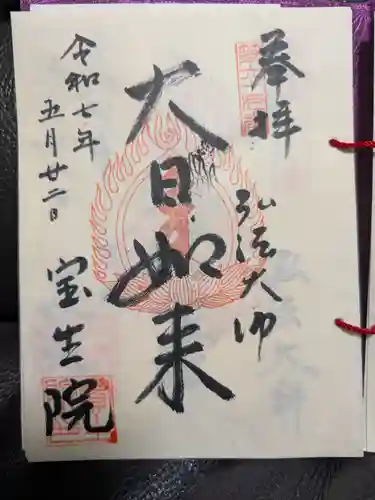 奉拝
弘法大師
大日如来
令和七年
五月廿二日
宝生院